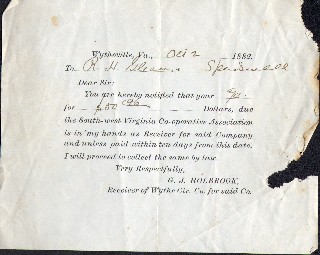 Wytheville, Va., Oct 2 1882.
To R. H.
Dear Sir:
You are hereby notified that your
for — $50 — Dollars, due
the South-west Virginia Co-operative Association
is in my hands as Receiver for said Company
and unless paid within ten days from this date,
I will proceed to collect the same by law.
Very Respectfully,
G. J. HOLBROOK,
Receiver of Wythe Cir. Co. for said Co.